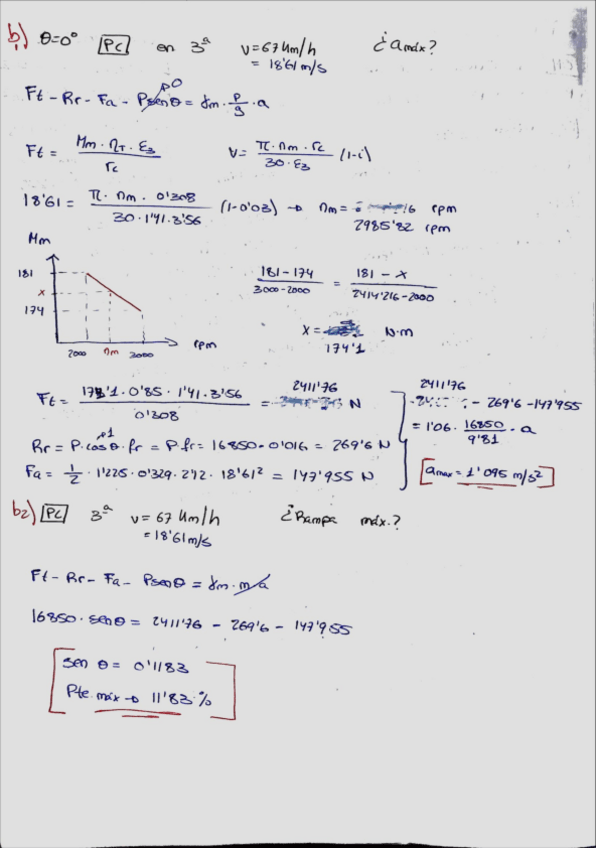 b1) θ=0° [PC] en 3ª v=67 Km/h ¿amáx?
= 18'61 m/s
Ft - Rr - Fa - P senθ 0 = γm · P/g · a
Ft = Mm · ηT · ε3 / rc    v = π · nm · rc / 30 · ε3 (1-i)
18'61 = π · nm · 0'308 / 30 · 1'41 · 3'56 (1-0'03) → nm = 16 rpm
2985'82 rpm
Mm
181
x
174
2000 nm 3000 rpm
181 - 174 / 3000 - 2000 = 181 - x / 2414'216 - 2000
x = N·m
174'1
Ft = 174'1 · 0'85 · 1'41 · 3'56 / 0'308 = 2411'76 N
Rr = P · cosθ 1 · fr = P · fr = 16850 · 0'016 = 269'6 N
Fa = 1/2 · 1'225 · 0'329 · 2'12 · 18'61² = 147'955 N
2411'76 - 269'6 - 147'955
= 1'06 · 16850/9'81 · a
amax = 1'095 m/s²
b2) [PC] 3ª v = 67 Km/h ¿Rampa máx.?
= 18'61 m/s
Ft - Rr - Fa - P senθ = γm · m · a
16850 · senθ = 2411'76 - 269'6 - 147'955
sen θ = 0'1183
Pte. máx → 11'83 %